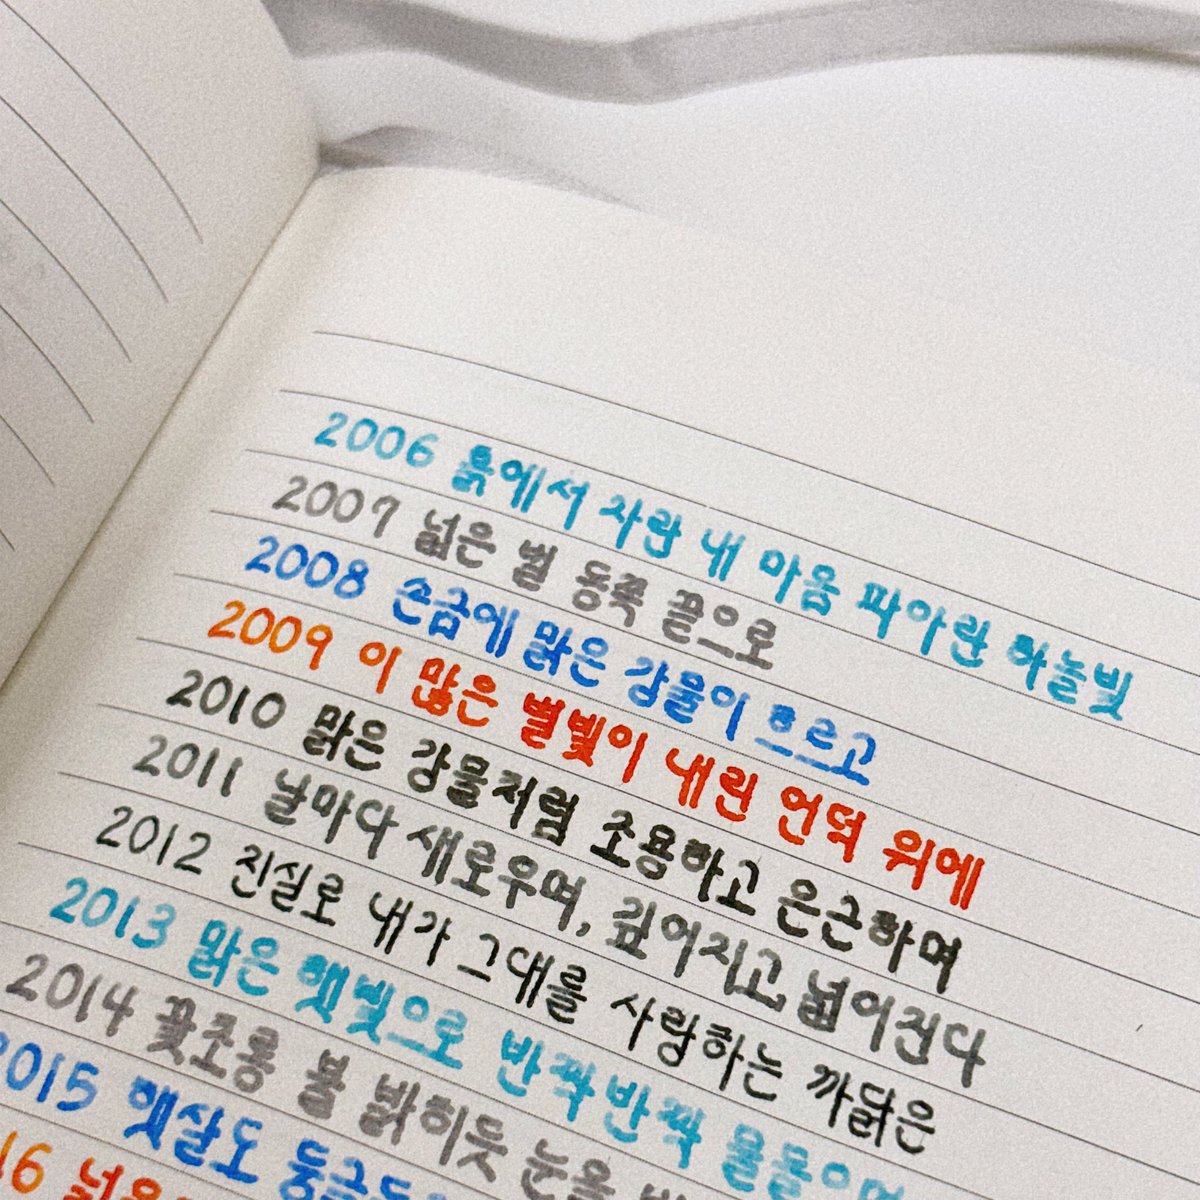 2006 흙에서 자란 내 마음 파아란 하늘빛
2007 넓은 벌 동쪽 끝으로
2008 손금에 맑은 강물이 흐르고
2009 이 많은 별빛이 내린 언덕 위에
2010 맑은 강물처럼 조용하고 은근하며
2011 날마다 새로우며, 깊어지고 넓어진다
2012 진실로 내가 그대를 사랑하는 까닭은
2013 맑은 햇빛으로 반짝반짝 물들이며
2014 꽃초롱 불 밝히듯 눈을
2015 햇살도 둥글
16 넓은